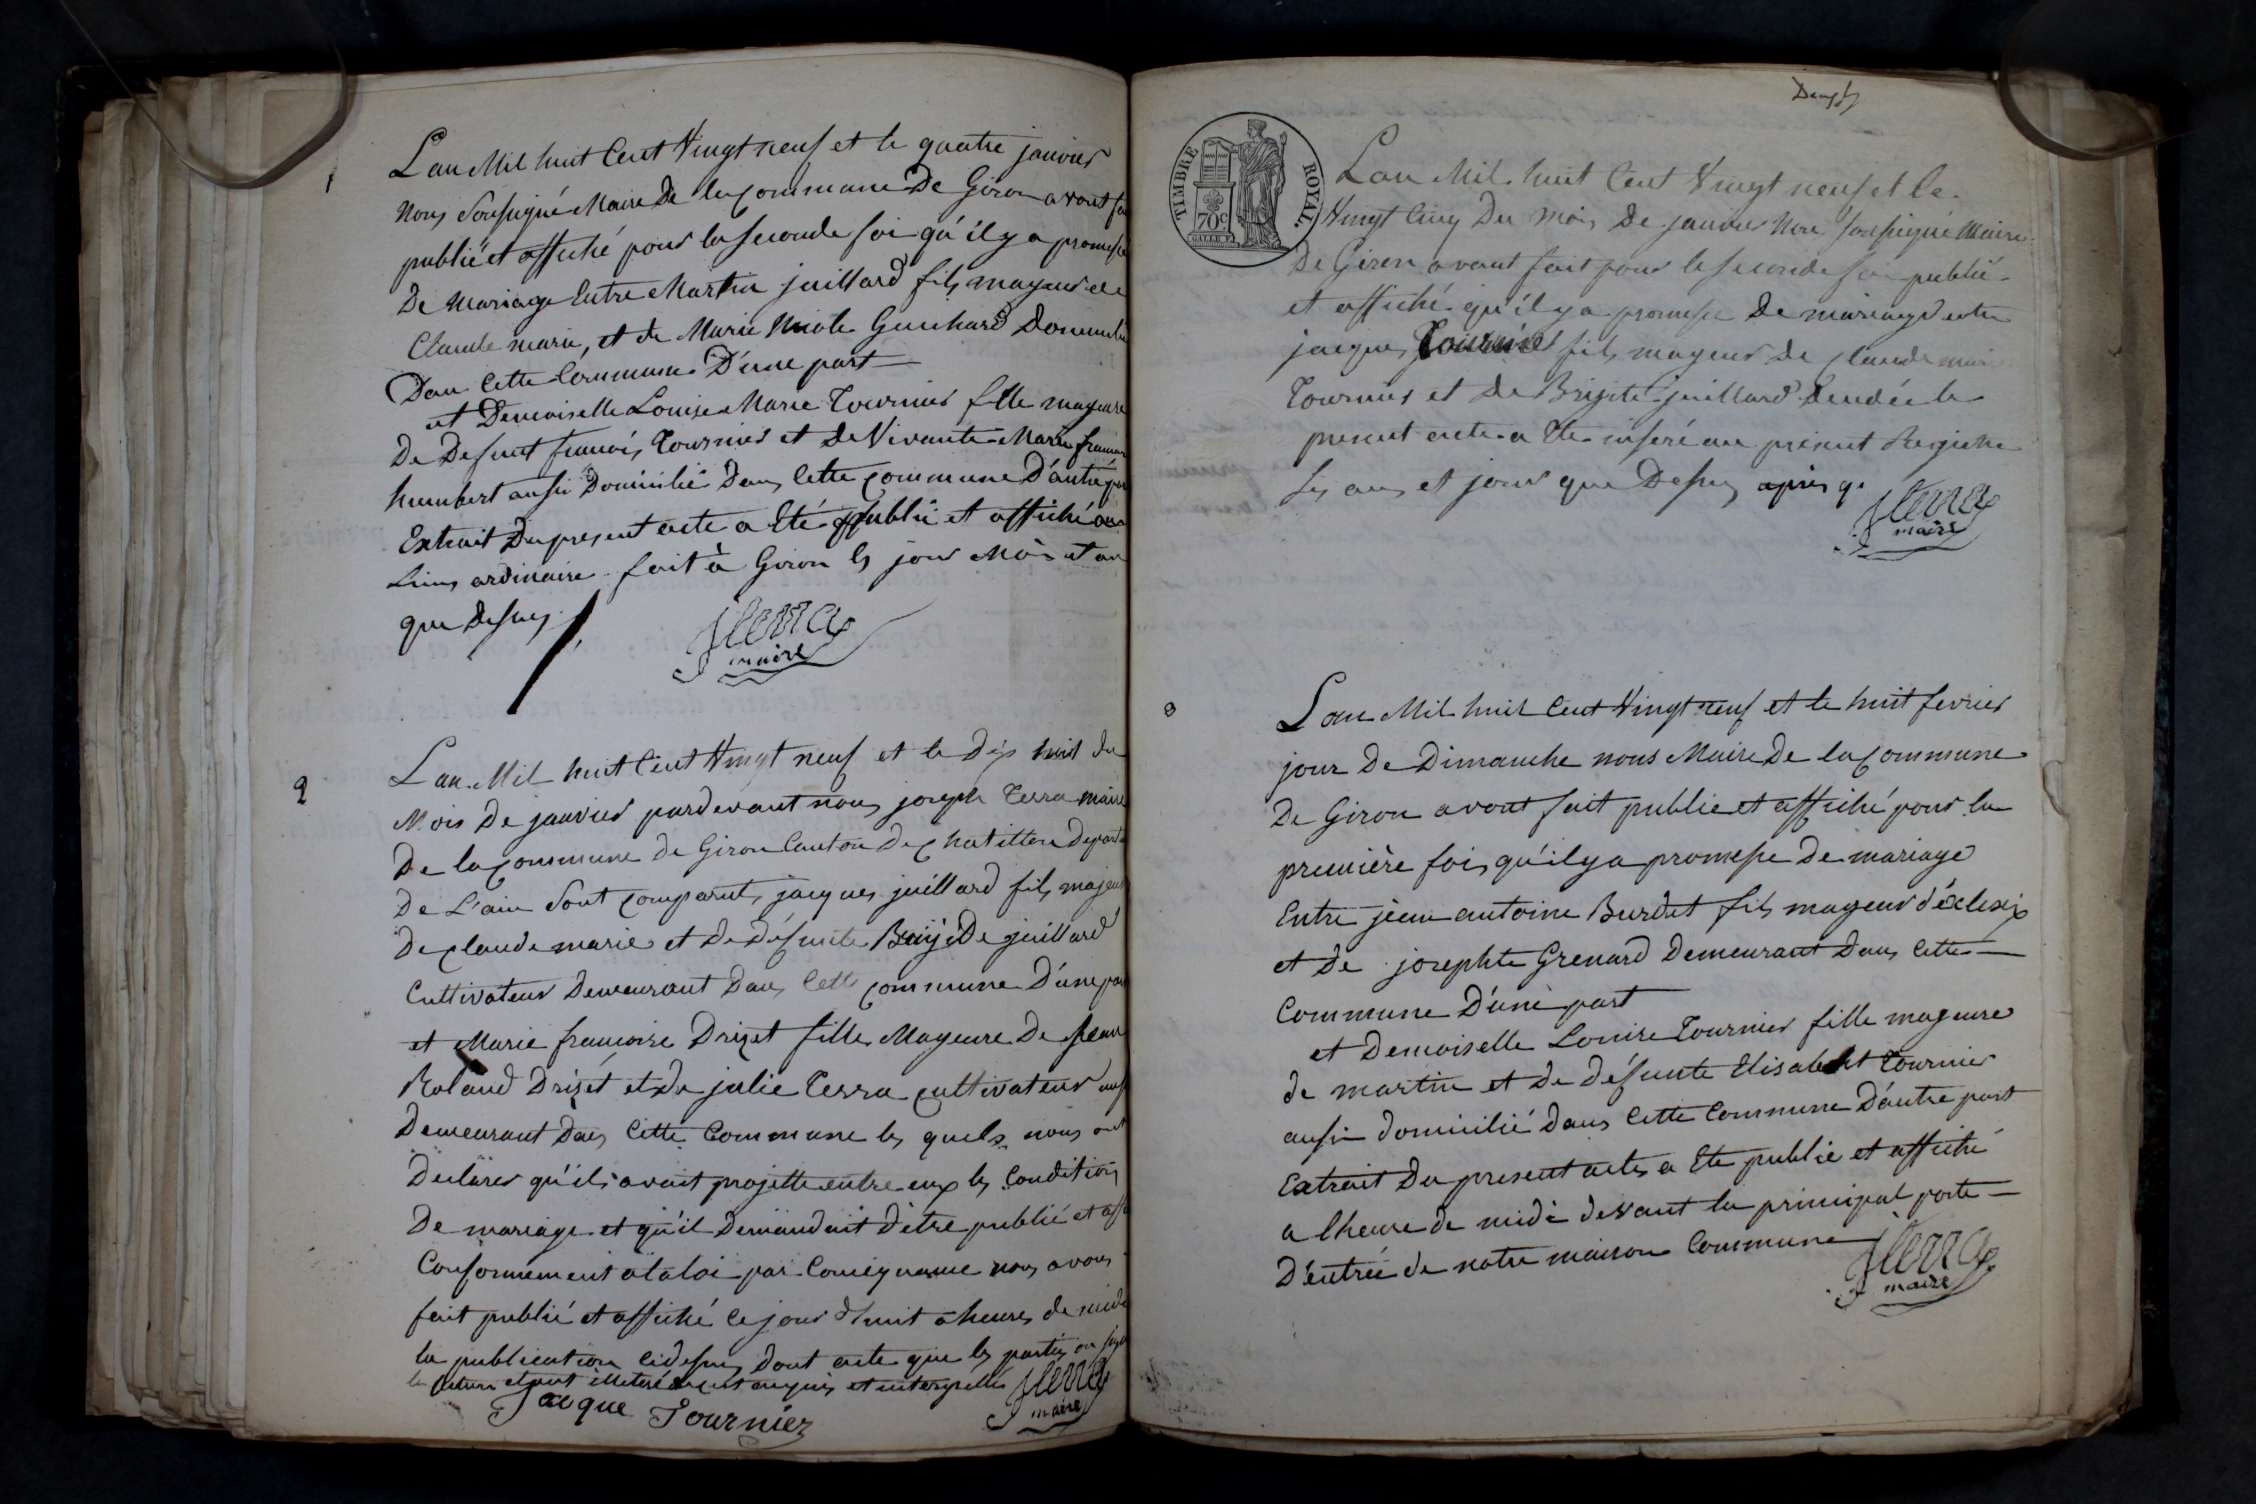 1
L'an Mil huit Cent Vingt neuf et le quatre janvier
Nous Soussigné Maire De la Commune De Giron avons fa
publié et affiché pour la seconde foi qu'il y a promesse
De Mariage Entre Martin juillard fils mayeur de
Claude marie, et de Marie Nicole Guichard Domicilié
Dan Cette Commune D'une part
et Demoiselle Louise Marie Tournier fille mayeure
De Defunt francois Tournier et De Vivante Marie francoise
humbert aussi Domicilié Dans Cette commune D'autre par
Extrait Du present acte a Eté publié et affiché au
Lieux ordinaire fait à Giron les jour Mois et an
que Dessus
JTerra
maire
2
L'an Mil huit Cent Vingt neuf et le Dix huit du
Mois De janvier pardevant nous joseph Terra maire
De la Commune de Giron Canton De Chatillon Depart
De L'ain Sont Comparut jacques juillard fils majeur
De Claude marie et De défunte Brijide juillard
Cultivateur Demeurant Dans Cette commune D'une par
et Marie francoise Drizet fille Mayeure De Jean
Roland Drizet et De julie Terra cultivateur aussi
Demeurant Dans Cette Commune les quels nous ont
Declarer qu'ils avait projetté entre eux les Condition
De mariage et qu'il Demandait d'être publié et affi
Conformement a la loi par Conséquence nous avons
fait publié et affiché ce jour d'huit a heures de midi
la publication cidessus dont acte que les parties on signé
le futur etant illiteré de ce enquis et interpellés
Jacque Tournier
JTerra
maire
Deux
TIMBRE ROYAL
70c
L'an Mil huit Cent Vingt neuf et le
Vingt Cinq Du mois De janvier Nou soussigné Maire
De Giron avons fait pour la seconde foi publié
et affiché qu'il y a promesse De mariage entre
jacques Tournier fils mayeur de Claude marie
Tournier et De Brijite juillard
present acte a Eté inseré au présent Registre
les ans et jour que Dessus après q.
JTerra
maire
3
L'an Mil huit Cent Vingt neuf et le huit fevrier
jour De Dimanche nous Maire De la Commune
De Giron avons fait publié et affiché pour la
première fois qu'il y a promesse De mariage
Entre jean antoine Burdet fils mayeur d'éclesix
et De josephte Grenard Demeurant Dans Cette
Commune D'une part
et Demoiselle Louise Tournier fille mageure
de martin et De défunte Elisabeht Tournier
aussi domicilié Dans Cette Commune D'autre part
Extrait Du present acte a Ete publié et affiché
a lheure de midi devant la principal porte
D'entrée de notre maison Commune
JTerra
maire